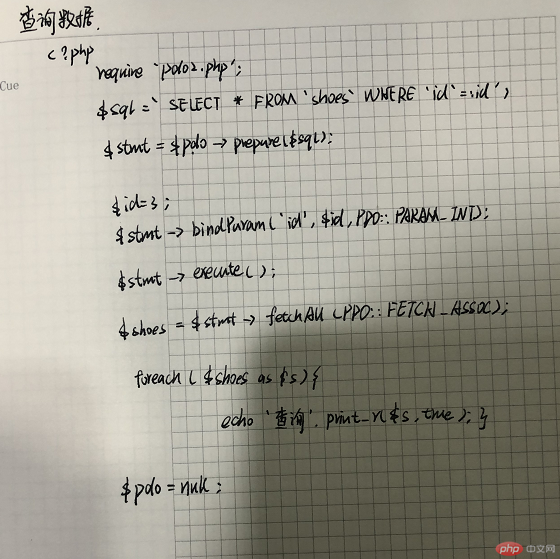 查询数据.
<?php
Cue
require 'pdo2.php';
$sql = `SELECT * FROM `shoes` WHERE `id`=:id';
$stmt = $pdo → prepare($sql);
$id=3;
$stmt → bindParam('id', $id, PDO::PARAM_INT);
$stmt → execute();
$shoes = $stmt → fetchAll (PDO::FETCH_ASSOC);
foreach ( $shoes as $s) {
echo '查询'. print_r($s, true); }
$pdo = null;
php 中文网